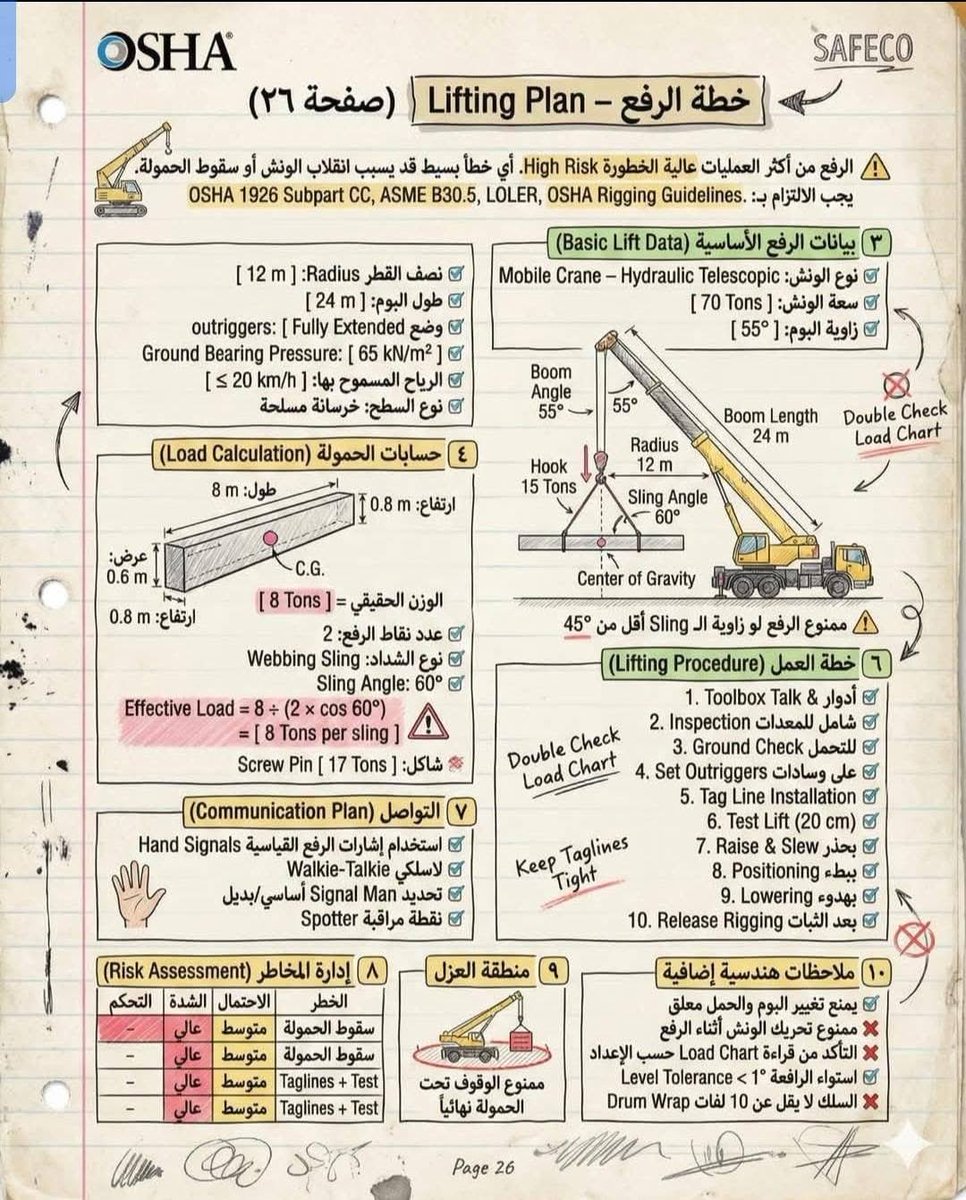 OSHA®
SAFECO
خطة الرفع – Lifting Plan (صفحة ٢٦)
الرفع من أكثر العمليات عالية الخطورة High Risk. أي خطأ بسيط قد يسبب انقلاب الونش أو سقوط الحمولة.
يجب الالتزام بـ: OSHA 1926 Subpart CC, ASME B30.5, LOLER, OSHA Rigging Guidelines.
٣ بيانات الرفع الأساسية (Basic Lift Data)
نوع الونش: Mobile Crane – Hydraulic Telescopic
سعة الونش: [ 70 Tons ]
زاوية البوم: [ 55° ]
نصف القطر Radius: [ 12 m ]
طول البوم: [ 24 m ]
وضع outriggers: [ Fully Extended
Ground Bearing Pressure: [ 65 kN/m² ]
الرياح المسموح بها: [ ≤ 20 km/h ]
نوع السطح: خرسانة مسلحة
Boom Angle 55°
55°
Boom Length 24 m
Radius 12 m
Hook 15 Tons
Sling Angle 60°
Center of Gravity
Double Check
Load Chart
ممنوع الرفع لو زاوية الـ Sling أقل من 45°
٤ حسابات الحمولة (Load Calculation)
طول: 8 m
ارتفاع: 0.8 m
عرض: 0.6 m
C.G.
ارتفاع: 0.8 m
الوزن الحقيقي = [ 8 Tons ]
عدد نقاط الرفع: 2
نوع الشداد: Webbing Sling
Sling Angle: 60°
Effective Load = 8 ÷ (2 × cos 60°)
= [ 8 Tons per sling ]
شاكل: Screw Pin [ 17 Tons ]
٦ خطة العمل (Lifting Procedure)
1. Toolbox Talk & أدوار
2. Inspection شامل للمعدات
3. Ground Check للتحمل
4. Set Outriggers على وسادات
5. Tag Line Installation
6. Test Lift (20 cm)
7. Raise & Slew بحذر
8. Positioning ببطء
9. Lowering بهدوء
10. Release Rigging بعد الثبات
Double Check
Load Chart
Keep Taglines
Tight
٧ التواصل (Communication Plan)
استخدام إشارات الرفع القياسية Hand Signals
لاسلكي Walkie-Talkie
تحديد Signal Man أساسي/بديل
نقطة مراقبة Spotter
٨ إدارة المخاطر (Risk Assessment)
الخطر الاحتمال الشدة التحكم
سقوط الحمولة متوسط عالي –
سقوط الحمولة متوسط عالي –
Taglines + Test متوسط عالي –
Taglines + Test متوسط عالي –
٩ منطقة العزل
ممنوع الوقوف تحت
الحمولة نهائياً
١٠ ملاحظات هندسية إضافية
يمنع تغيير البوم والحمل معلق
ممنوع تحريك الونش أثناء الرفع
التأكد من قراءة Load Chart حسب الإعداد
استواء الرافعة Level Tolerance < 1°
السلك لا يقل عن 10 لفات Drum Wrap
Page 26